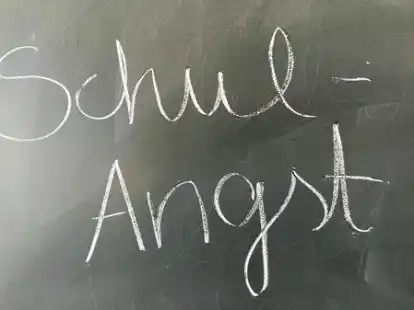 Schul-
Angst